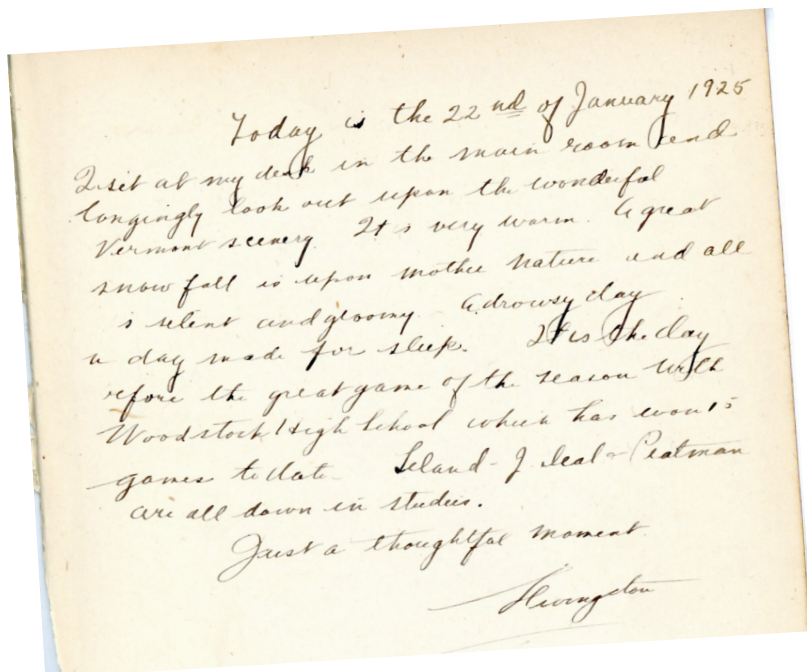 Today is the 22nd of January 1925
I sit at my desk in the main room and
longingly look out upon the wonderful
Vermont scenery. It s very warm. A great
snow fall is upon mother nature and all
s silent and gloomy. A drowsy day
a day made for sleep. It is the day
efore the great game of the season with
Woodstock High School which has won 15
games to date Leland - J. Deal - Peatman
are all down in studies.
Just a thoughtful moment.
Livingston